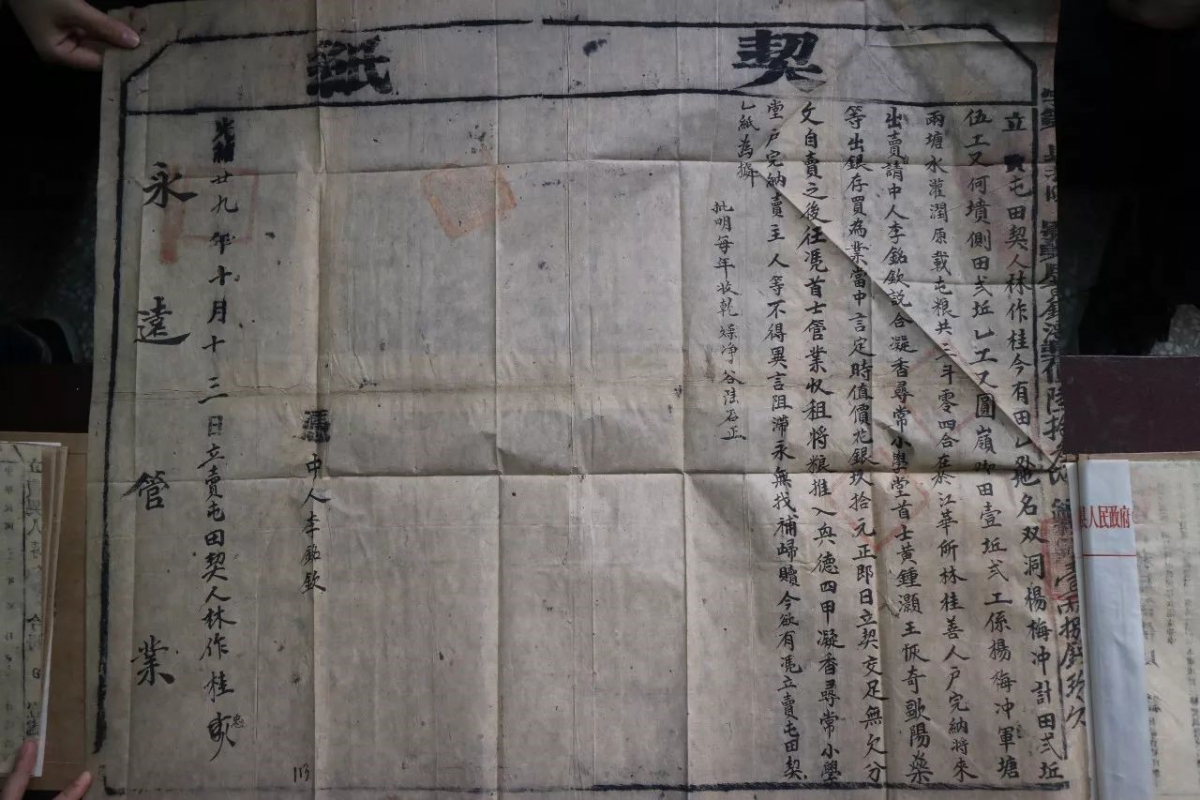 契紙
立賣屯田契人林作桂今有田乚𠁅地名双洞楊梅冲計田弍坵
伍工又何墳側田弍坵乚工又圓嶺脚田壹坵弍工係楊梅冲軍塘
兩塘水灌潤原載屯粮共三斗零四合在於江華所林桂善人戶完納將來
出賣請中人李銘欽説合凝香尋常小學堂首士黃鍾灝王恢奇歐陽燊
等出銀存買為業當中言定時值價花銀玖拾元正即日立契交足無欠分
文自賣之後任憑首士管業收租將粮推入興德四甲凝香尋常小學
堂戶完納賣主人等不得異言阻滞永無找補歸贖今欲有憑立賣屯田契
乚紙為據
批明每年收乾燥净谷陸石正
憑中人李銘欽
光緒廿九年十月十三日立賣屯田契人林作桂
永遠管業
113
縣人民政府